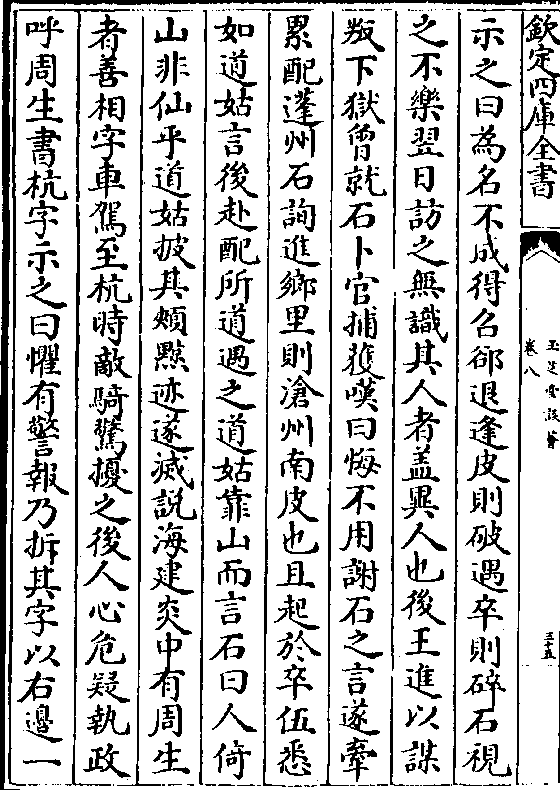 欽定四庫全書
卷八
三十五
示之曰為名不成得召郤退逢皮則破遇卒則碎石視
之不樂翌日訪之無識其人者盖異人也後王進以謀
叛下獄曾就石卜官捕獲嘆曰悔不用謝石之言遂牽
累配蓬州石詢進鄉里則滄州南皮也且起於卒伍悉
如道姑言後赴配所道遇之道姑靠山而言石曰人倚
山非仙乎道姑披其頰㸃迹遂滅説海建炎中有周生
者善相字車駕至杭時敵騎驚擾之後人心危疑執政
呼周生書杭字示之曰懼有警報乃拆其字以右邊一